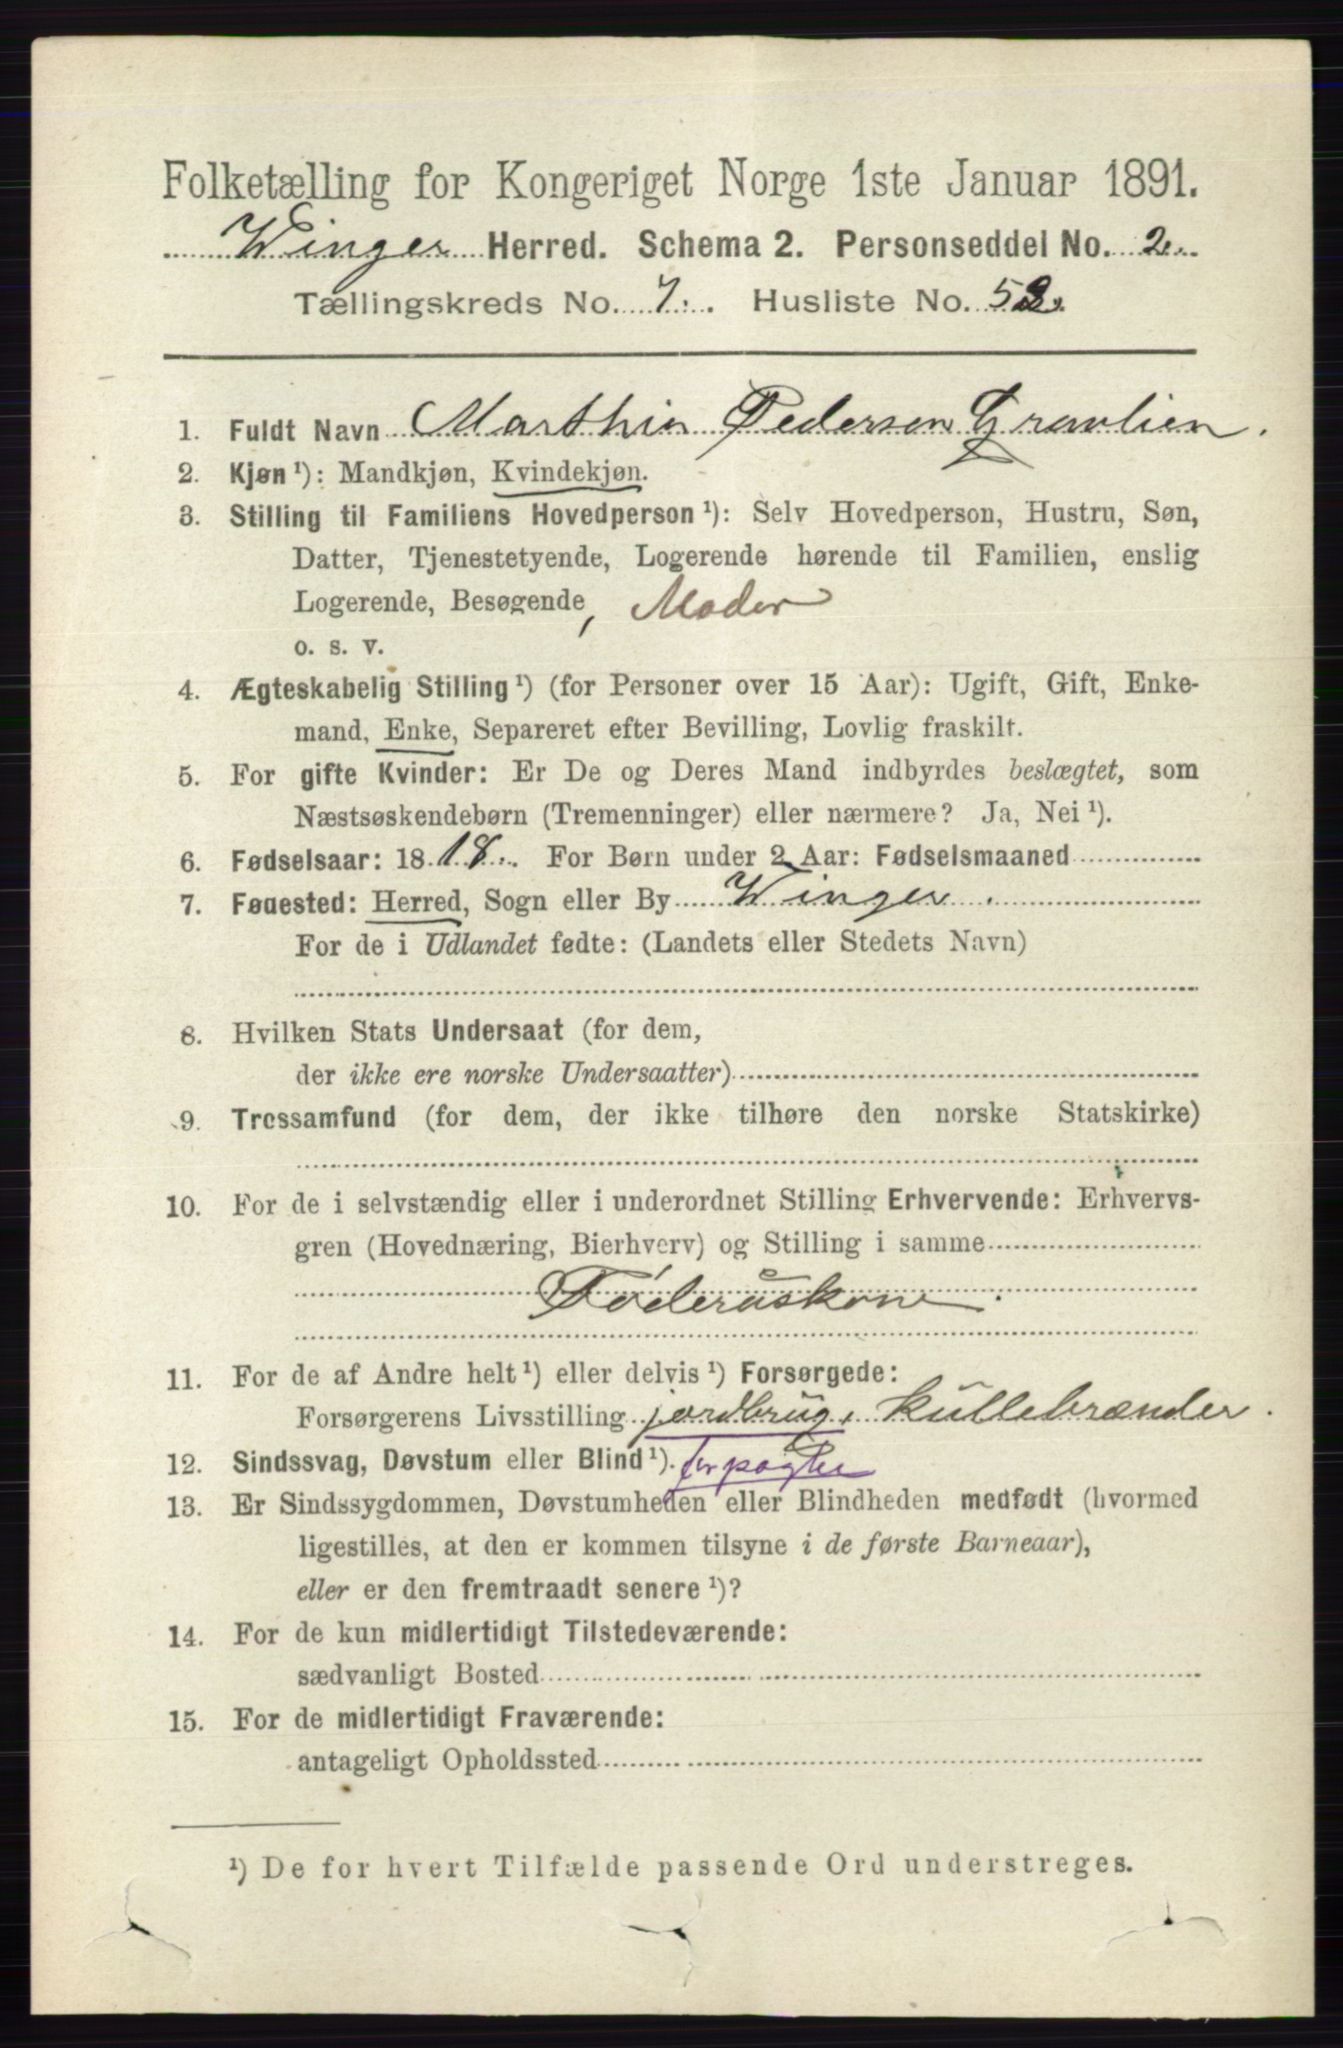 Folketælling for Kongeriget Norge 1ste Januar 1891.
Winger Herred. Schema 2. Personseddel No. 2.
Tællingskreds No. 7. Husliste No. 52.
1. Fuldt Navn Marthia Pedersen Gravlien.
2. Kjøn ¹): Mandkjøn, Kvindekjøn.
3. Stilling til Familiens Hovedperson ¹): Selv Hovedperson, Hustru, Søn,
Datter, Tjenestetyende, Logerende hørende til Familien, enslig
Logerende, Besøgende, Moder
o. s. v.
4. Ægteskabelig Stilling ¹) (for Personer over 15 Aar): Ugift, Gift, Enke-
mand, Enke, Separeret efter Bevilling, Lovlig fraskilt.
5. For gifte Kvinder: Er De og Deres Mand indbyrdes beslægtet, som
Næstsøskendebørn (Tremenninger) eller nærmere? Ja, Nei ¹).
6. Fødselsaar: 1818. For Børn under 2 Aar: Fødselsmaaned
7. Fødested: Herred, Sogn eller By Winger.
For de i Udlandet fødte: (Landets eller Stedets Navn)
8. Hvilken Stats Undersaat (for dem,
der ikke ere norske Undersaatter)
9. Trossamfund (for dem, der ikke tilhøre den norske Statskirke)
10. For de i selvstændig eller i underordnet Stilling Erhvervende: Erhvervs-
gren (Hovednæring, Bierhverv) og Stilling i samme
Føderuskone.
11. For de af Andre helt ¹) eller delvis ¹) Forsørgede:
Forsørgerens Livsstilling jordbrug, kullebrænder.
12. Sindssvag, Døvstum eller Blind ¹). forpagter
13. Er Sindssygdommen, Døvstumheden eller Blindheden medfødt (hvormed
ligestilles, at den er kommen tilsyne i de første Barneaar),
eller er den fremtraadt senere ¹)?
14. For de kun midlertidigt Tilstedeværende:
sædvanligt Bosted
15. For de midlertidigt Fraværende:
antageligt Opholdssted
¹) De for hvert Tilfælde passende Ord understreges.